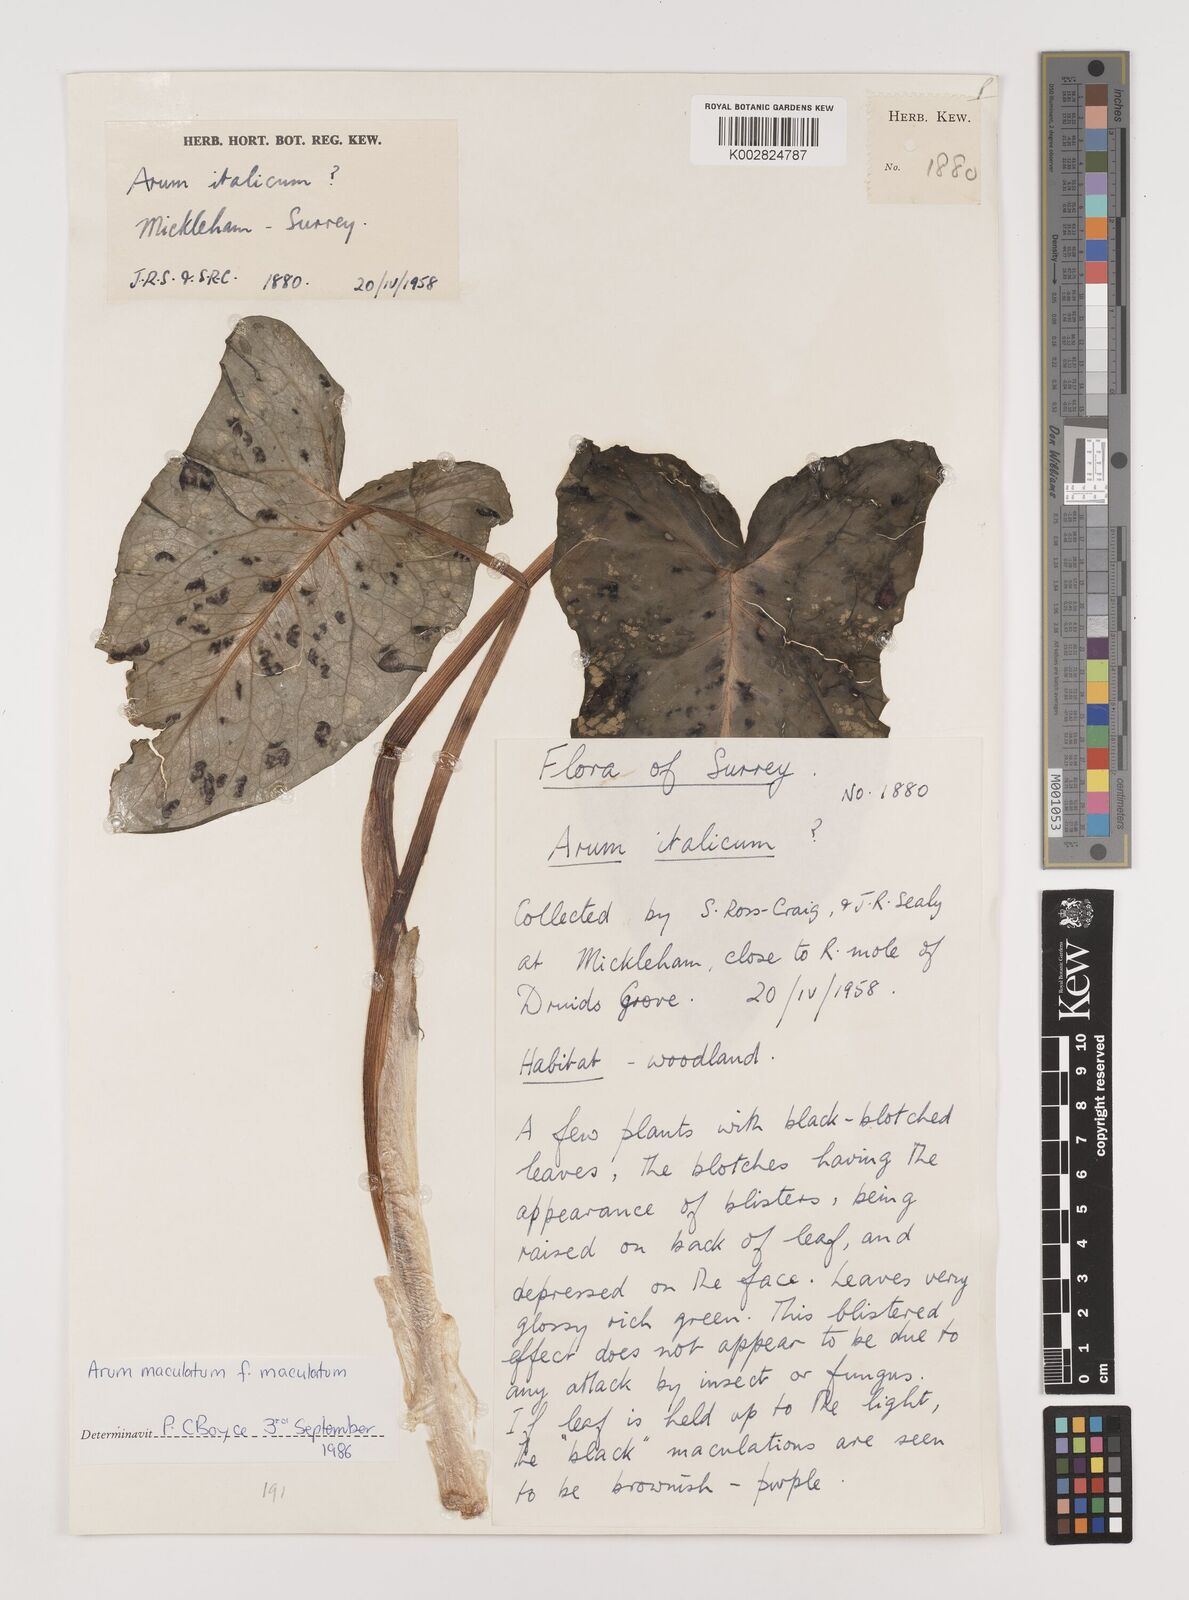 HERB. HORT. BOT. REG. KEW.
Arum italicum ?
Mickleham - Surrey.
J.R.S. & S.R-C. 1880. 20/IV/1958
ROYAL BOTANIC GARDENS KEW
K002824787
HERB. KEW.
No. 1880
Flora of Surrey.
No. 1880
Arum italicum ?
Collected by S. Ross-Craig, & J.R. Sealy
at Mickleham, close to R. mole of
Druids Grove. 20/IV/1958.
Habitat - woodland.
A few plants with black-blotched
leaves, the blotches having the
appearance of blisters, being
raised on back of leaf, and
depressed on the face. Leaves very
glossy rich green. This blistered
effect does not appear to be due to
any attack by insect or fungus.
If leaf is held up to the light,
the "black" maculations are seen
to be brownish - purple.
Arum maculatum f. maculatum
Determinavit P. C Boyce 3rd September
1986
191
inches
Density
Don Williams
centimetres
M001053
Royal Botanic Gardens
Kew
0 1 2 3 4 5 6 7 8 9 10
cm
copyright reserved